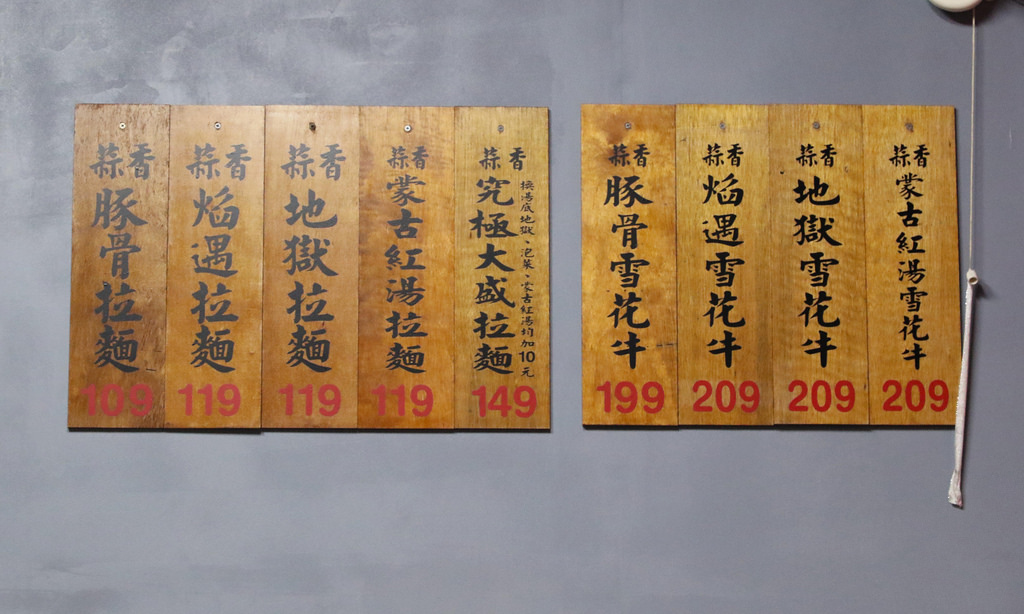 蒜香
豚骨拉麵
109
蒜香
焰遇拉麵
119
蒜香
地獄拉麵
119
蒜香
蒙古紅湯拉麵
119
蒜香
究極大盛拉麵
換湯底地獄、泡菜、蒙古紅湯均加10元
149
蒜香
豚骨雪花牛
199
蒜香
焰遇雪花牛
209
蒜香
地獄雪花牛
209
蒜香
蒙古紅湯雪花牛
209